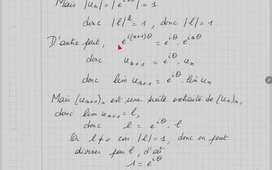 Mais |uₙ| = |e^{inθ}| = 1
donc |l|² = 1, donc |l| = 1.
D'autre part, e^{i(n+1)θ} = e^{iθ} · e^{inθ}
donc uₙ₊₁ = e^{iθ} · uₙ
donc lim uₙ₊₁ = e^{iθ} · lim uₙ
Mais (uₙ₊₁)ₙ est une suite extraite de (uₙ)ₙ,
donc lim uₙ₊₁ = l,
donc l = e^{iθ} · l
Or l ≠ 0 car |l| = 1, donc on peut
diviser par l, d'où
1 = e^{iθ}